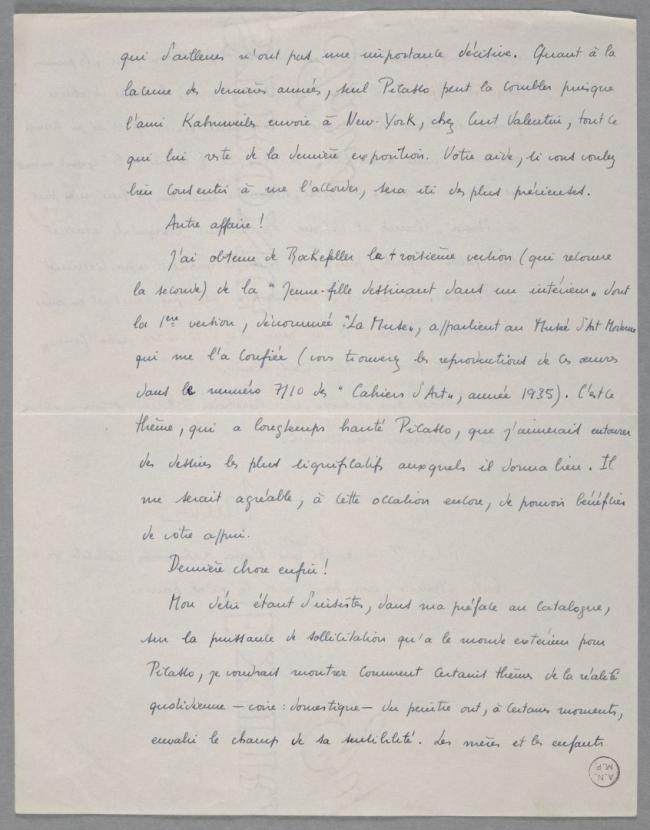 qui d'ailleurs n'ont pas une importance décisive. Quant à la
lacune des dernières années, seul Picasso peut la combler puisque
l'ami Kahnweiler envoie à New-York, chez Curt Valentin, tout ce
qui lui reste de la dernière exposition. Votre aide, si vous voulez
bien consentir à me l'accorder, sera ici des plus précieuses.
Autre affaire !
J'ai obtenu de Rockefeller la troisième version (qui retourne
la seconde) de la "Jeune-fille dessinant dans un intérieur" dont
la 1ère version, dénommée "La Muse", appartient au Musée d'Art Moderne
qui me l'a confiée (vous trouverez les reproductions de ces œuvres
dans le numéro 7/10 des "Cahiers d'Art", année 1935). C'est ce
thème, qui a longtemps hanté Picasso, que j'aimerais entourer
des dessins les plus significatifs auxquels il donna lieu. Il
me serait agréable, à cette occasion encore, de pouvoir bénéficier
de votre appui.
Dernière chose enfin !
Mon désir étant d'insister, dans ma préface au catalogue,
sur la puissance de sollicitation qu'a le monde extérieur pour
Picasso, je voudrais montrer comment certains thèmes de la réalité
quotidienne — voire : domestique — du peintre ont, à certains moments,
envahi le champ de sa sensibilité. Les mères et les enfants
A.N.
M.P